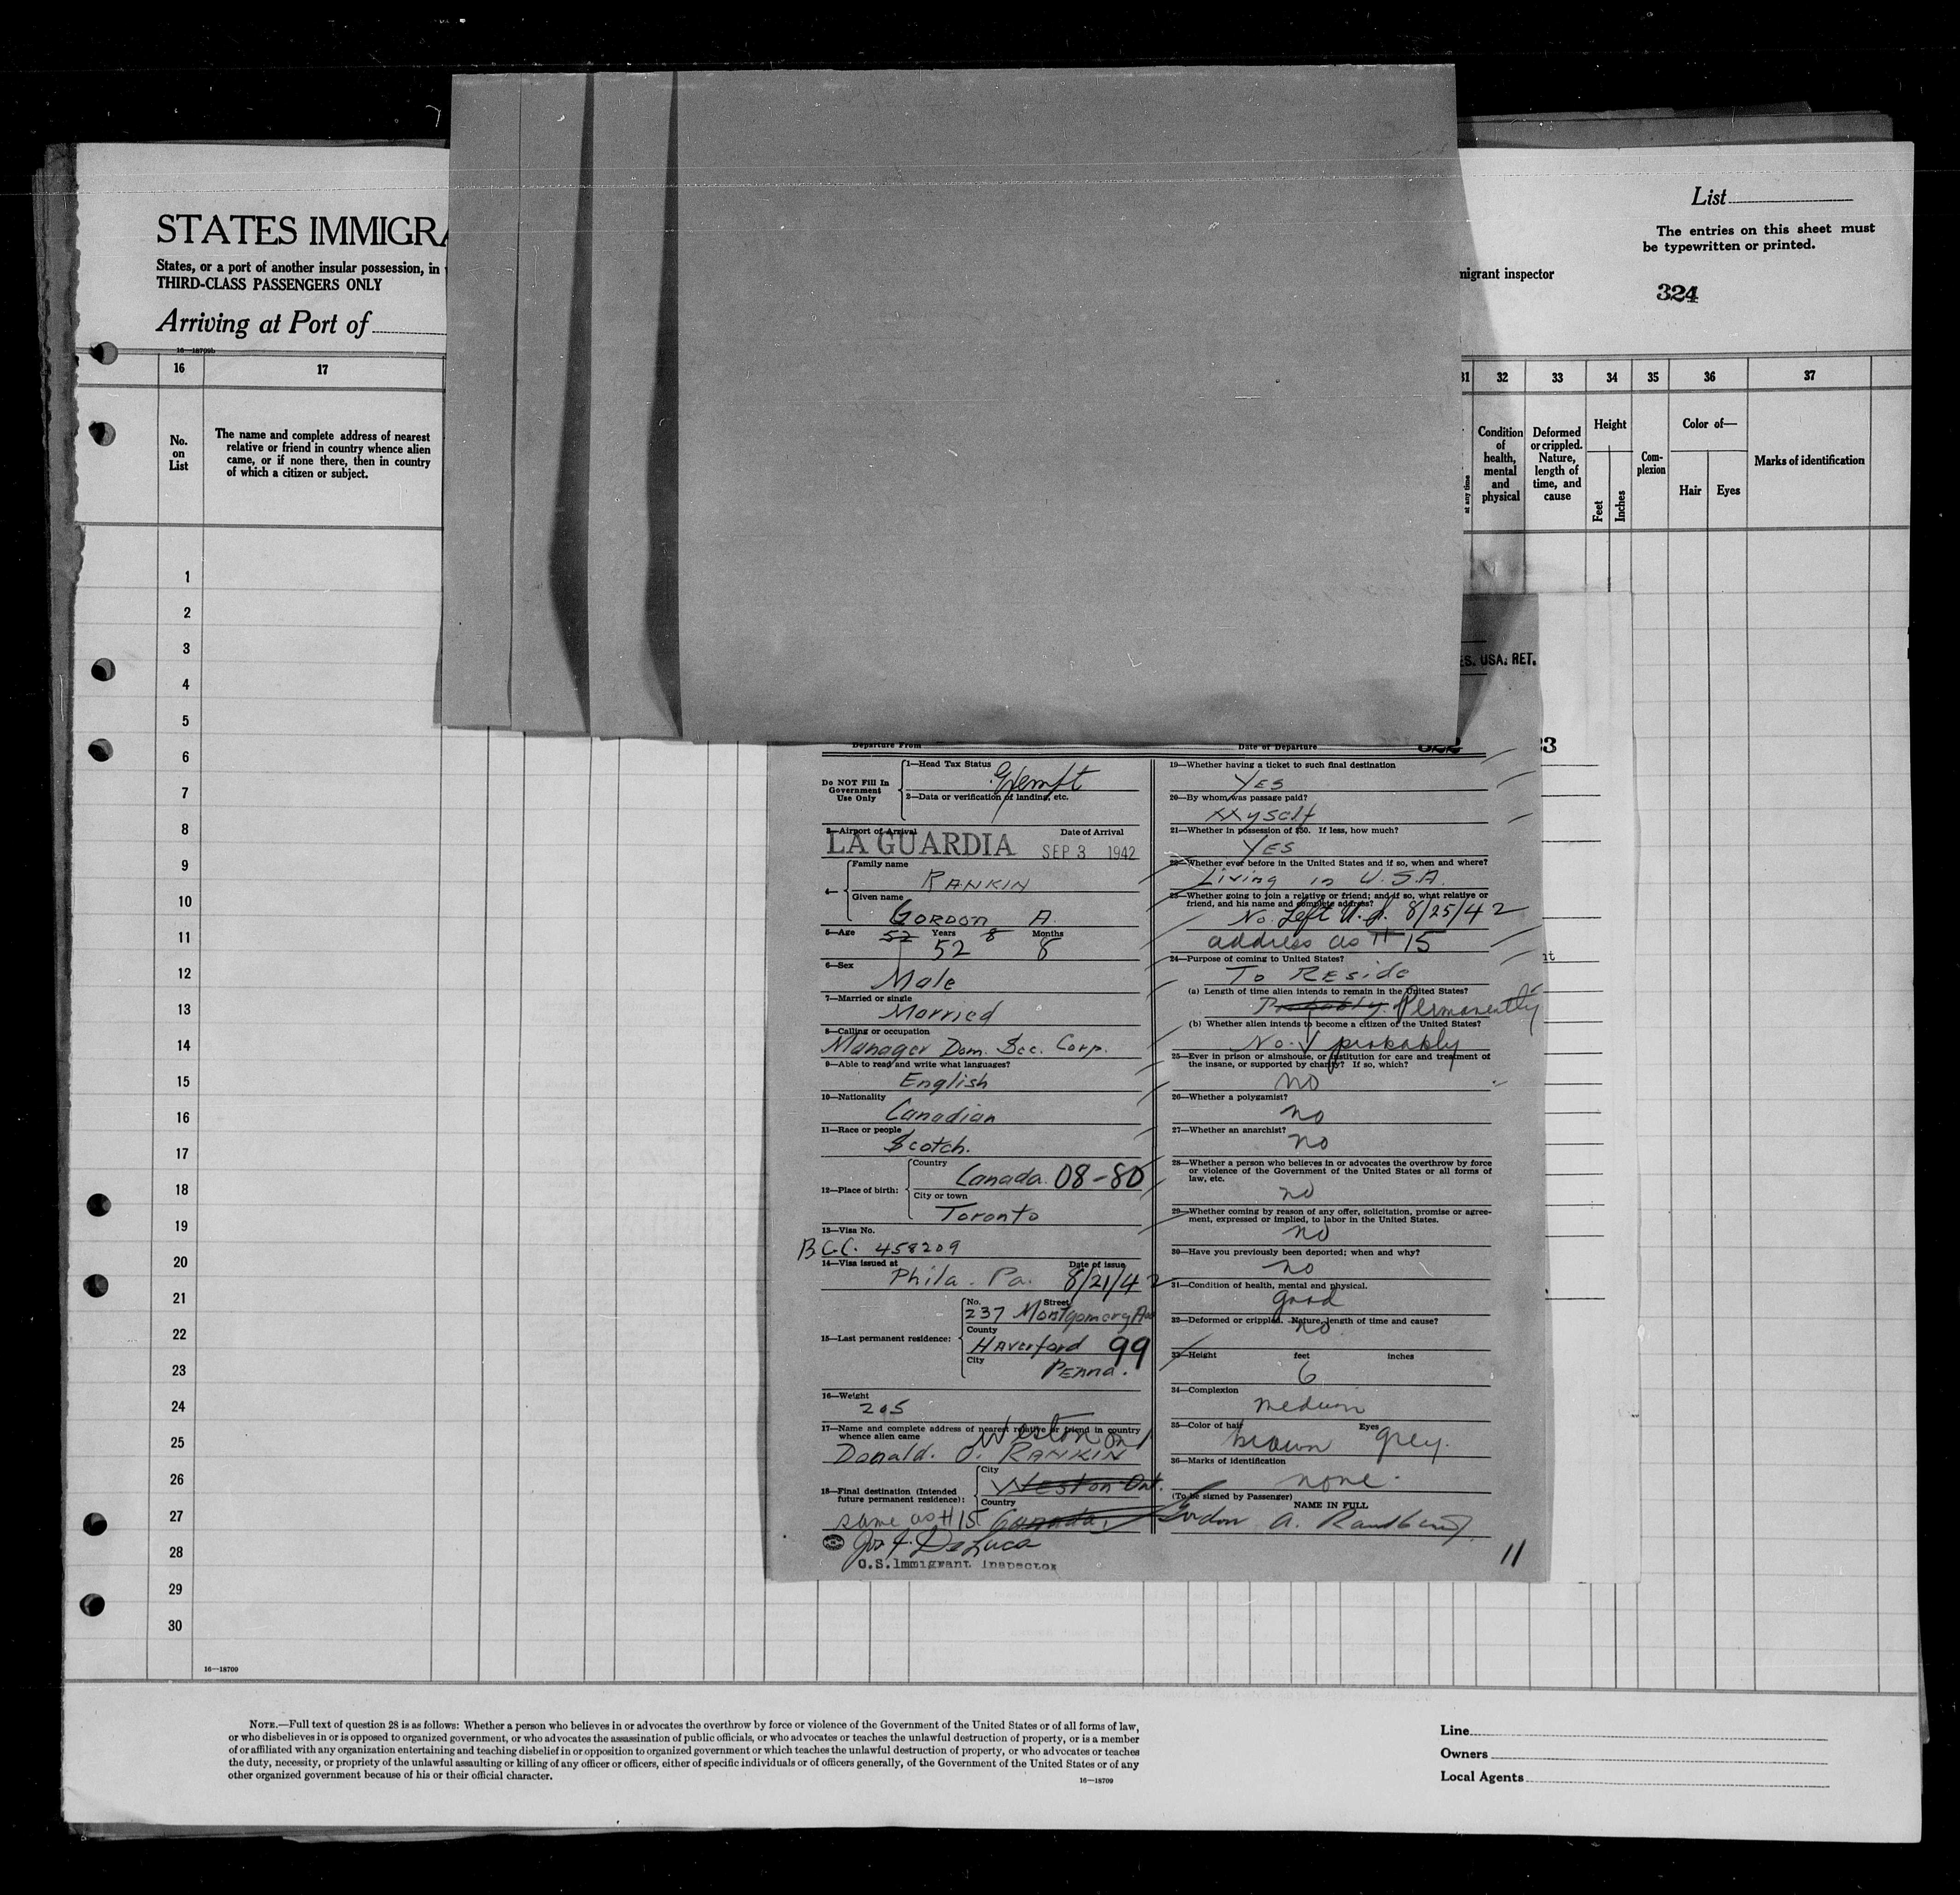 STATES IMMIGRA
States, or a port of another insular possession, in
THIRD-CLASS PASSENGERS ONLY
Arriving at Port of
16—18709b
List
The entries on this sheet must
be typewritten or printed.
migrant inspector
324
16 17
No.
on
List
The name and complete address of nearest
relative or friend in country whence alien
came, or if none there, then in country
of which a citizen or subject.
31 32 33 34 35 36 37
at any time
Condition
of
health,
mental
and
physical
Deformed
or crippled.
Nature,
length of
time, and
cause
Height
Feet
Inches
Com-
plexion
Color of—
Hair Eyes
Marks of identification
1
2
3
4
5
6
7
8
9
10
11
12
13
14
15
16
17
18
19
20
21
22
23
24
25
26
27
28
29
30
16—18709
ES. USA. RET.
Departure From Date of Departure
Do NOT Fill In
Government
Use Only
1—Head Tax Status
Exempt
2—Data or verification of landing, etc.
3—Airport of Arrival Date of Arrival
LA GUARDIA SEP 3 1942
4—
Family name
RANKIN
Given name
GORDON A.
5—Age 52 Years 8 Months
52 8
6—Sex
Male
7—Married or single
Married
8—Calling or occupation
Manager Dom. Sec. Corp.
9—Able to read and write what languages?
English
10—Nationality
Canadian
11—Race or people
Scotch.
12—Place of birth:
Country
Canada. 08-80
City or town
Toronto
13—Visa No.
B C.C. 458209
14—Visa issued at Date of issue
Phila. Pa. 8/21/42
15—Last permanent residence:
No. Street
237 Montgomery Ave
County
Haverford 99
City
Penna.
16—Weight
205
17—Name and complete address of nearest relative or friend in country
whence alien came
Weston Ont
Donald. O. RANKIN
18—Final destination (Intended
future permanent residence):
City
Weston Ont.
Country
same as #15 Canada.
Jos F. DeLuca
U.S. Immigrant Inspector
19—Whether having a ticket to such final destination
YES
20—By whom was passage paid?
Myself
21—Whether in possession of $50. If less, how much?
YES
22—Whether ever before in the United States and if so, when and where?
Living in U.S.A.
23—Whether going to join a relative or friend; and if so, what relative or
friend, and his name and complete address?
No. Left U.S. 8/25/42
address as # 15
24—Purpose of coming to United States?
To Reside
(a) Length of time alien intends to remain in the United States?
Probably Permanently
(b) Whether alien intends to become a citizen of the United States?
No. probably
25—Ever in prison or almshouse, or institution for care and treatment of
the insane, or supported by charity? If so, which?
no
26—Whether a polygamist?
no
27—Whether an anarchist?
no
28—Whether a person who believes in or advocates the overthrow by force
or violence of the Government of the United States or all forms of
law, etc.
no
29—Whether coming by reason of any offer, solicitation, promise or agree-
ment, expressed or implied, to labor in the United States.
no
30—Have you previously been deported; when and why?
no
31—Condition of health, mental and physical.
good
32—Deformed or crippled. Nature, length of time and cause?
no
33—Height feet inches
6
34—Complexion
medium
35—Color of hair Eyes
brown grey.
36—Marks of identification
none.
(To be signed by Passenger)
NAME IN FULL
Gordon A.
11
Note.—Full text of question 28 is as follows: Whether a person who believes in or advocates the overthrow by force or violence of the Government of the United States or of all forms of law,
or who disbelieves in or is opposed to organized government, or who advocates the assassination of public officials, or who advocates or teaches the unlawful destruction of property, or is a member
of or affiliated with any organization entertaining and teaching disbelief in or opposition to organized government or which teaches the unlawful destruction of property, or who advocates or teaches
the duty, necessity, or propriety of the unlawful assaulting or killing of any officer or officers, either of specific individuals or of officers generally, of the Government of the United States or of any
other organized government because of his or their official character.
16—18709
Line
Owners
Local Agents